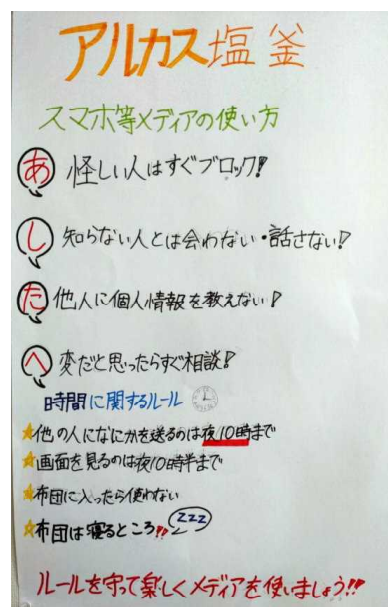 アルカス塩釜
スマホ等メディアの使い方
あ 怪しい人はすぐブロック!!
し 知らない人とは会わない・話さない!!
た 他人に個人情報を教えない!!
へ 変だと思ったらすぐ相談!!
時間に関するルール
★他の人になにかを送るのは夜10時まで
★画面を見るのは夜10時半まで
★布団に入ったら使わない
★布団は寝るところ!! zzz
ルールを守って楽しくメディアを使いましょう!!